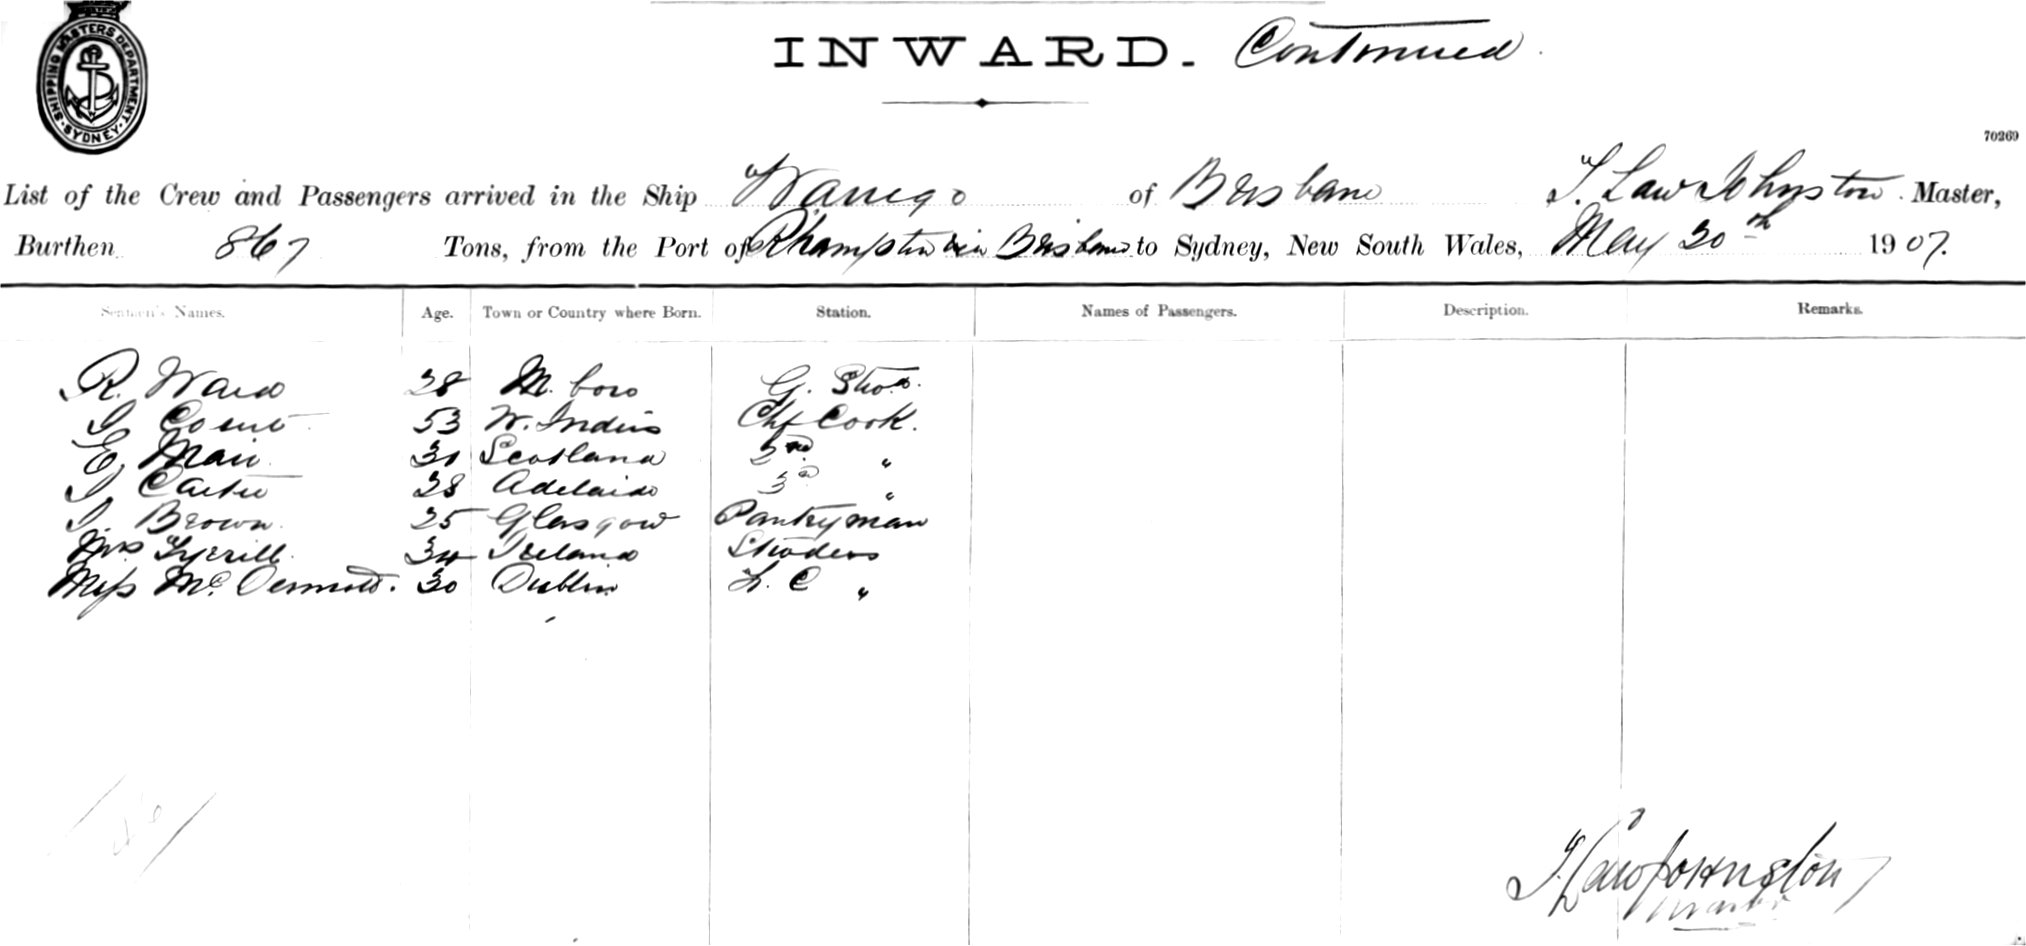 SHIPPING MASTERS DEPARTMENT. SYDNEY.
INWARD. Continued
70269
List of the Crew and Passengers arrived in the Ship Warrego of Brisbane T. Law Johnston. Master,
Burthen 867 Tons, from the Port of R'hampton via Brisbane to Sydney, New South Wales, May 20th 1907.
Seamen's Names. Age. Town or Country where Born. Station. Names of Passengers. Description. Remarks.
R. Ward 28 M. boro G.
53 W. Indies Chf Cook.
E. Mair 31 Scotland 2nd "
J. Carter 28 Adelaide 3rd "
J. Brown. 25 Glasgow Pantryman
Mrs Tyrrill. 34 Ireland
Miss McDermott. 30 Dublin "
T. Law Johnston
Master